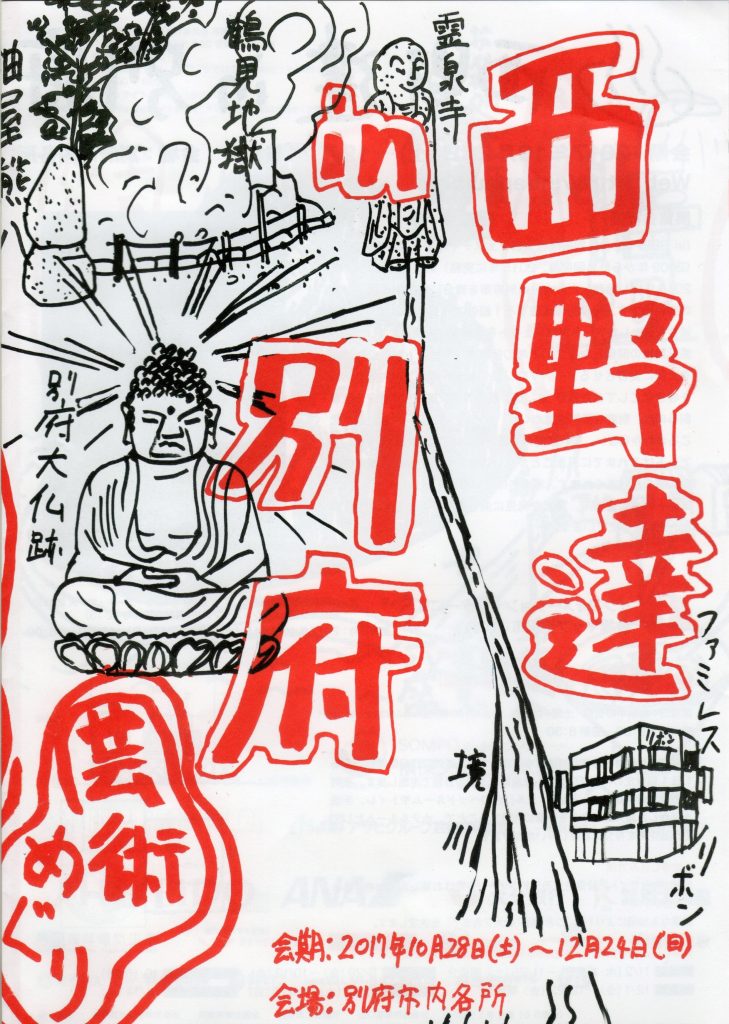 西野達
in
別府
霊泉寺
鶴見地獄
別府大仏跡
境
ファミレス
リボン
リボン
芸術
めぐり
会期：2017年10月28日(土)～12月24日(日)
会場：別府市内各所